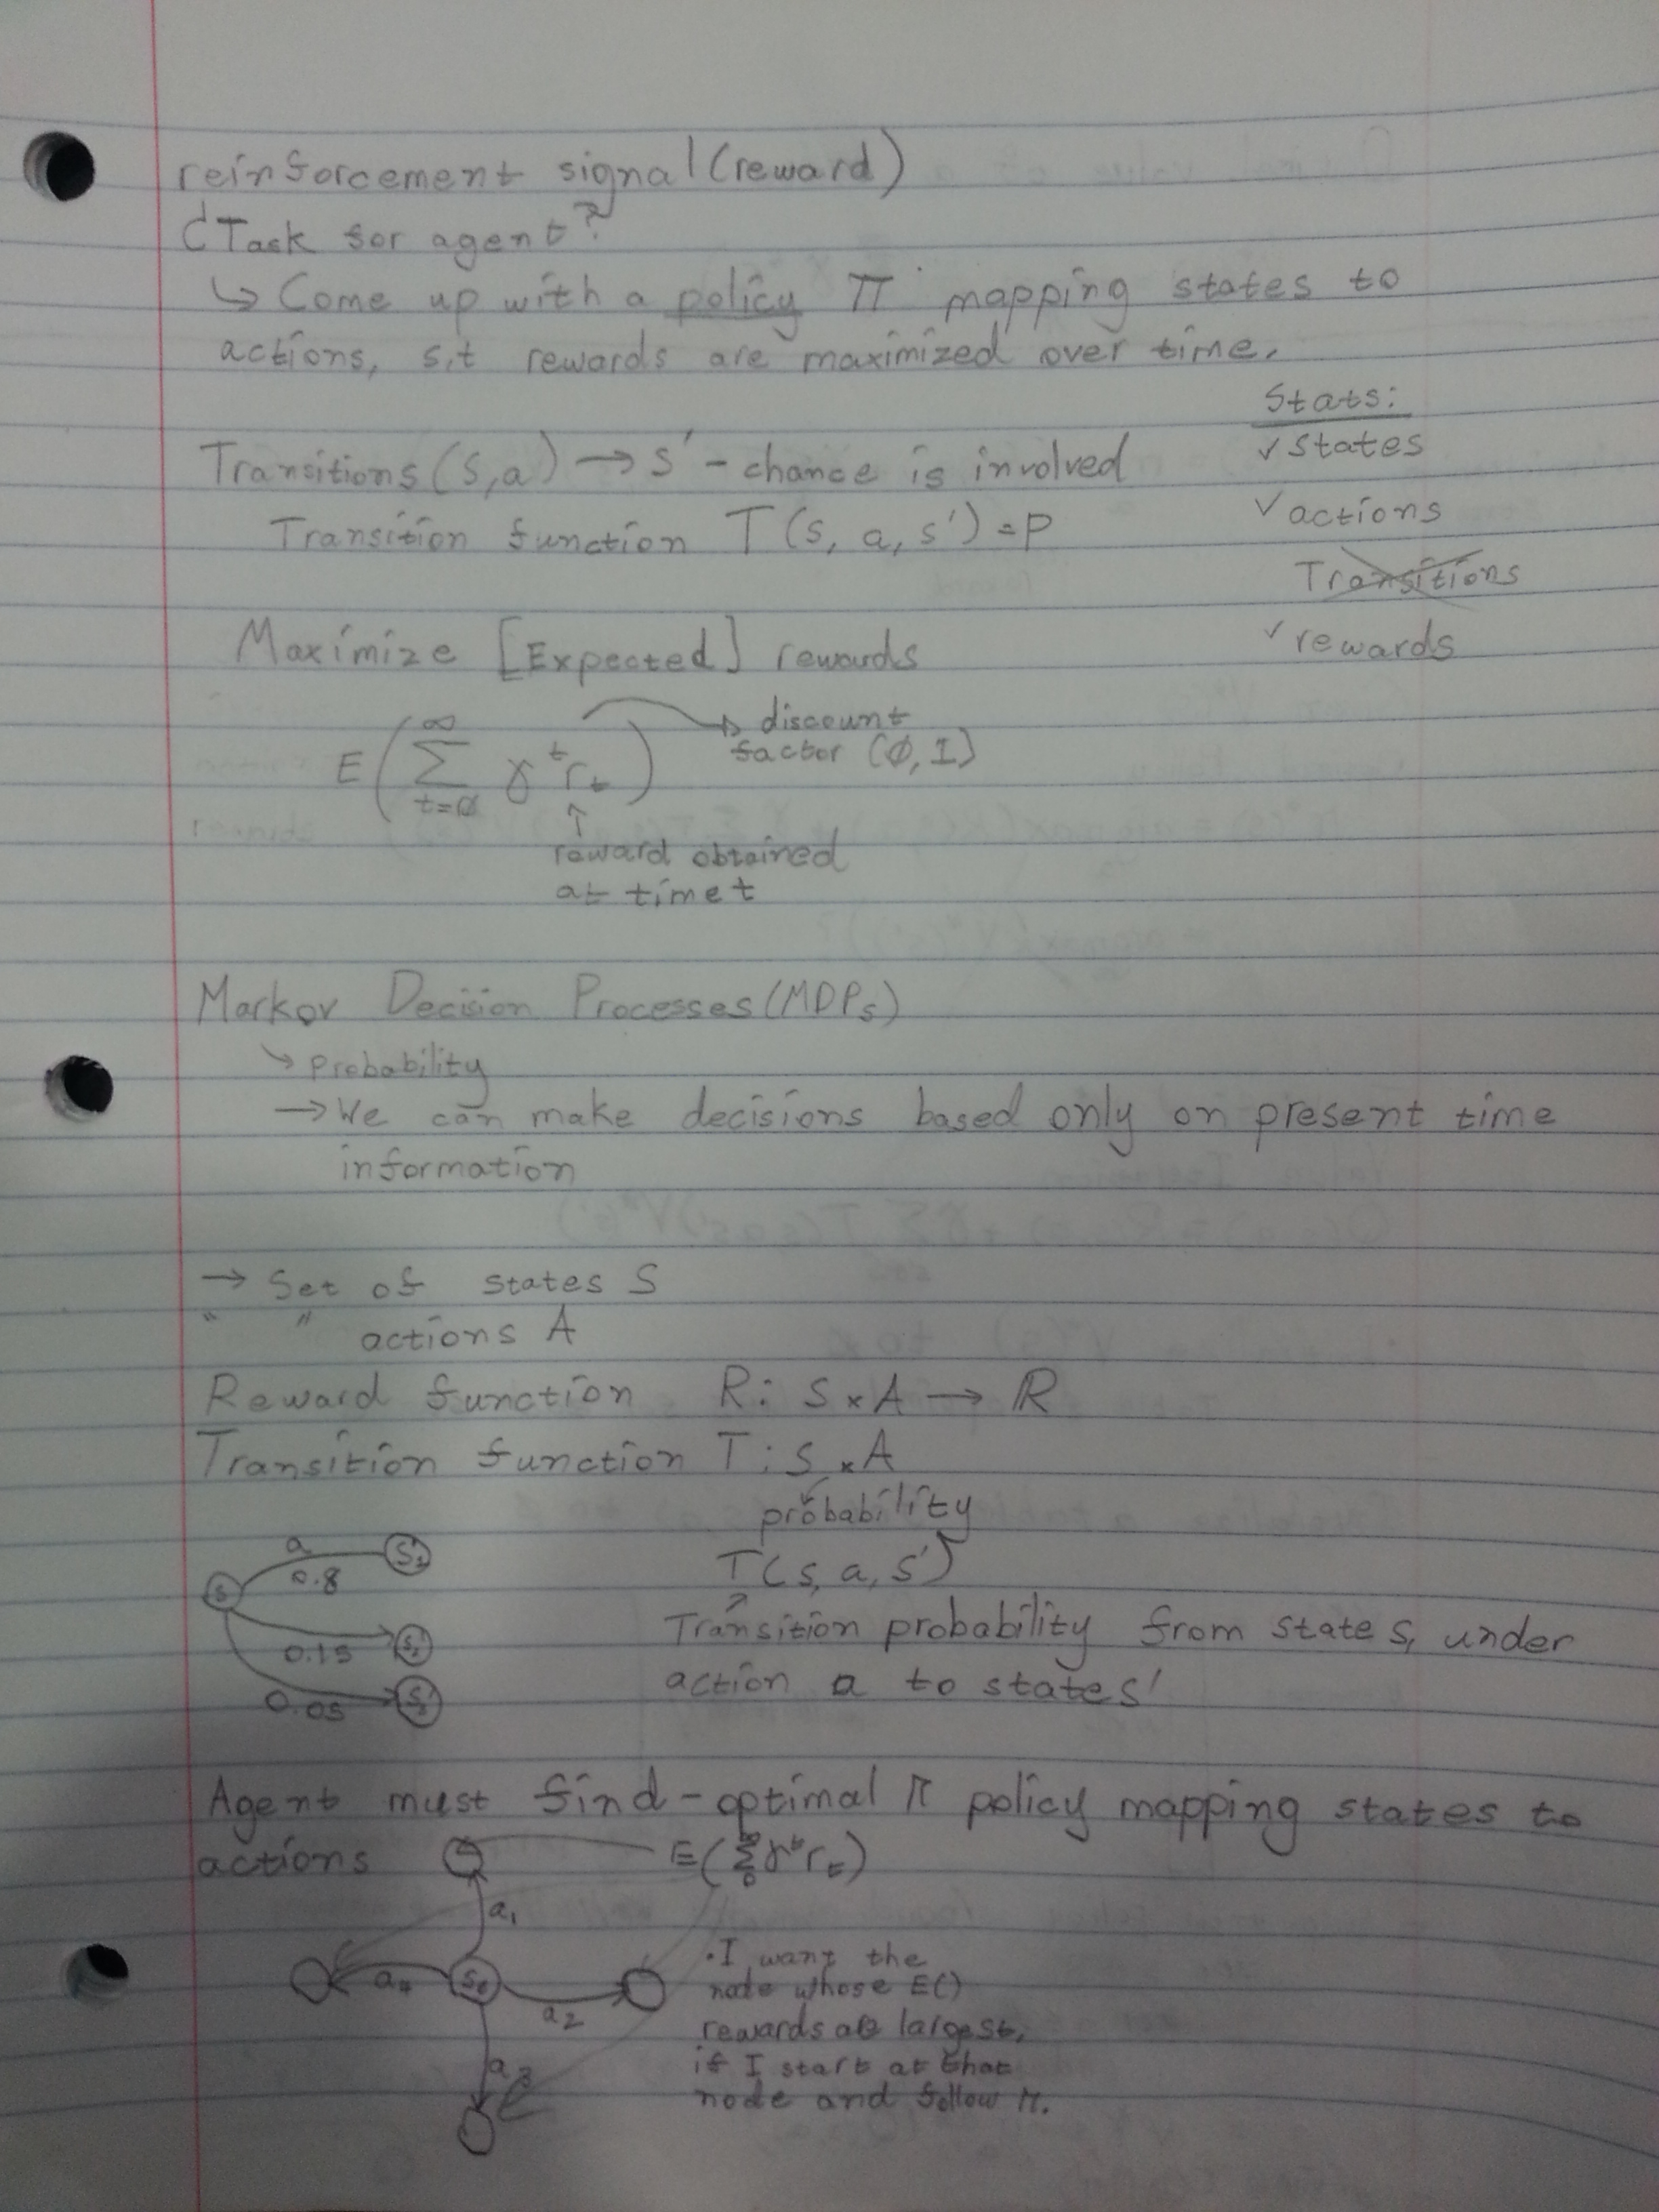 reinforcement signal (reward)
Task for agent?
↳ Come up with a policy π mapping states to
actions, s.t rewards are maximized over time.
Stats:
✓ states
Transitions (s,a) → s' - chance is involved
✓ actions
Transition function T(s, a, s') = P
Transitions
✓ rewards
Maximize [Expected] rewards
discount
factor (∅, 1)
E(∑ γ^t r_t)
∞
t=∅
↑
reward obtained
at time t
Markov Decision Processes (MDPs)
↘ probability
→ We can make decisions based only on present time
information
→ Set of states S
" " actions A
Reward function R: S × A → ℝ
Transition function T: S × A
probability
a
S'₁
0.8
T(s, a, s')
S
Transition probability from state s, under
0.15
S'₂
action a to state s'
0.05
S'₃
Agent must find - optimal π policy mapping states to
actions
E(∑ γ^t r_t)
∞
0
a₁
· I want the
a₄
S₀
node whose E()
a₂
rewards are largest,
if I start at that
a₃
node and follow π.